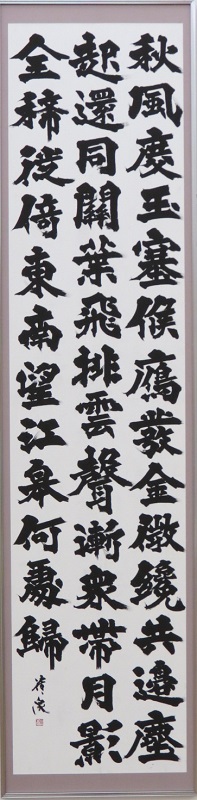 秋風度玉塞候鴈發金微纔共邊塵
起還同關葉飛排雲聲漸衆帶月影
全稀徙倚東南望江皋何處歸